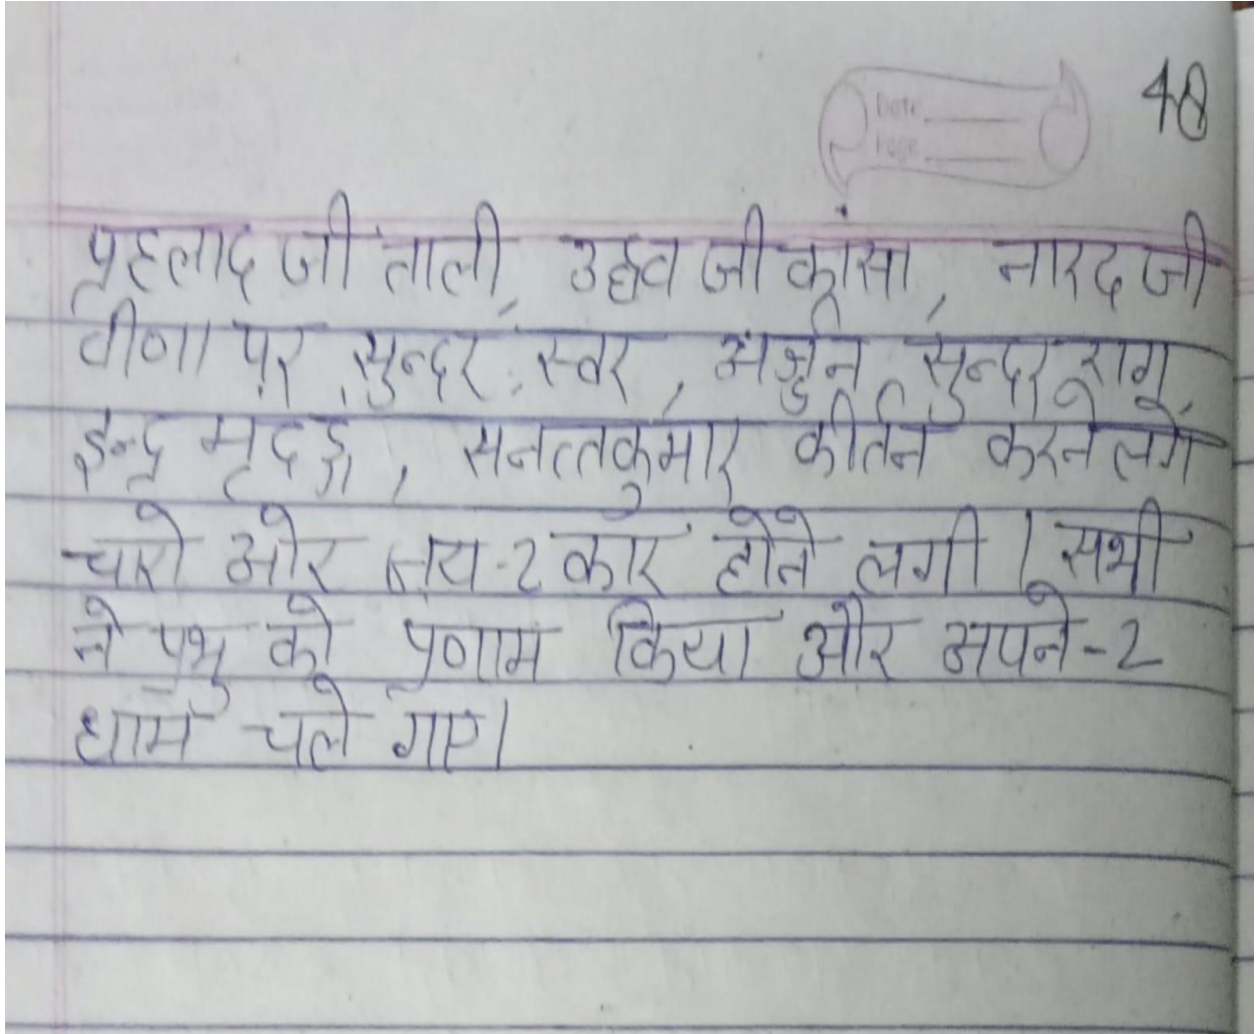 48
Date
Page
प्रहलाद जी ताली, उद्धव जी कांसा, नारद जी
वीणा पर सुन्दर स्वर, अर्जुन सुन्दर राग,
इन्द्र मृदङ्ग, सनत्तकुमार कीर्तन करने लगे
चारो ओर जय-2 कार होने लगी। सभी
ने प्रभु को प्रणाम किया और अपने-2
धाम चले गए।